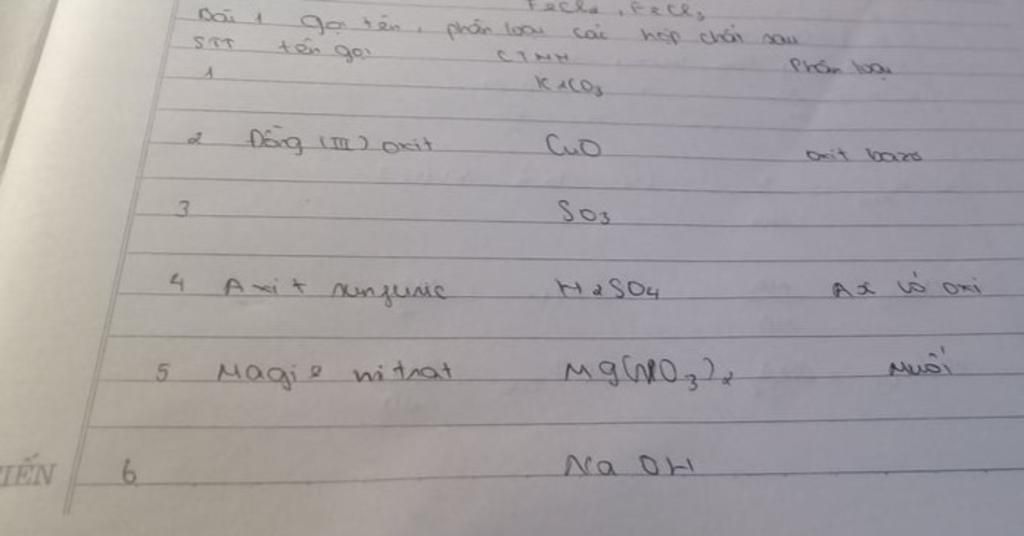 FeCl2, FeCl3
Bài 1 gọi tên, phân loại các hợp chất sau
STT tên gọi CTHH Phân loại
1 K2CO3
2 Đồng (III) oxit CuO oxit bazo
3 SO3
4 Axit sunfuric H2SO4 Ax có oxi
5 Magie nitrat Mg(NO3)2 Muối
6 NaOH
TIẾN